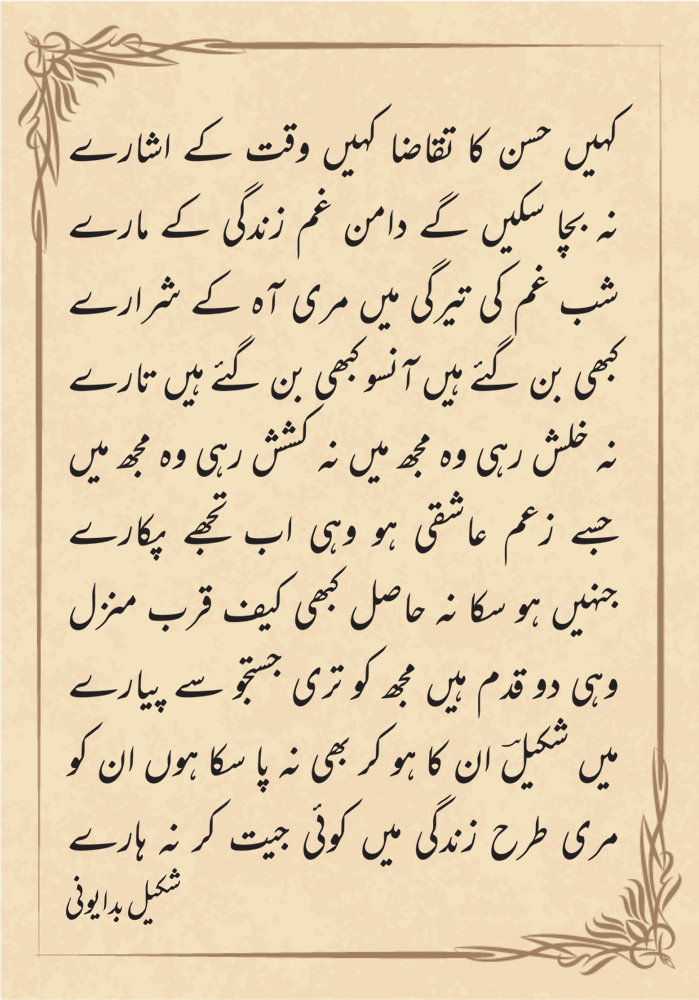 کہیں حسن کا تقاضا کہیں وقت کے اشارے
نہ بچا سکیں گے دامن غم زندگی کے مارے
شب غم کی تیرگی میں مری آہ کے شرارے
کبھی بن گئے ہیں آنسو کبھی بن گئے ہیں تارے
نہ خلش رہی وہ مجھ میں نہ کشش رہی وہ مجھ میں
جسے زعم عاشقی ہو وہی اب تجھے پکارے
جنہیں ہو سکا نہ حاصل کبھی کیف قرب منزل
وہی دو قدم ہیں مجھ کو تری جستجو سے پیارے
میں شکیلؔ ان کا ہو کر بھی نہ پا سکا ہوں ان کو
مری طرح زندگی میں کوئی جیت کر نہ ہارے
شکیل بدایونی